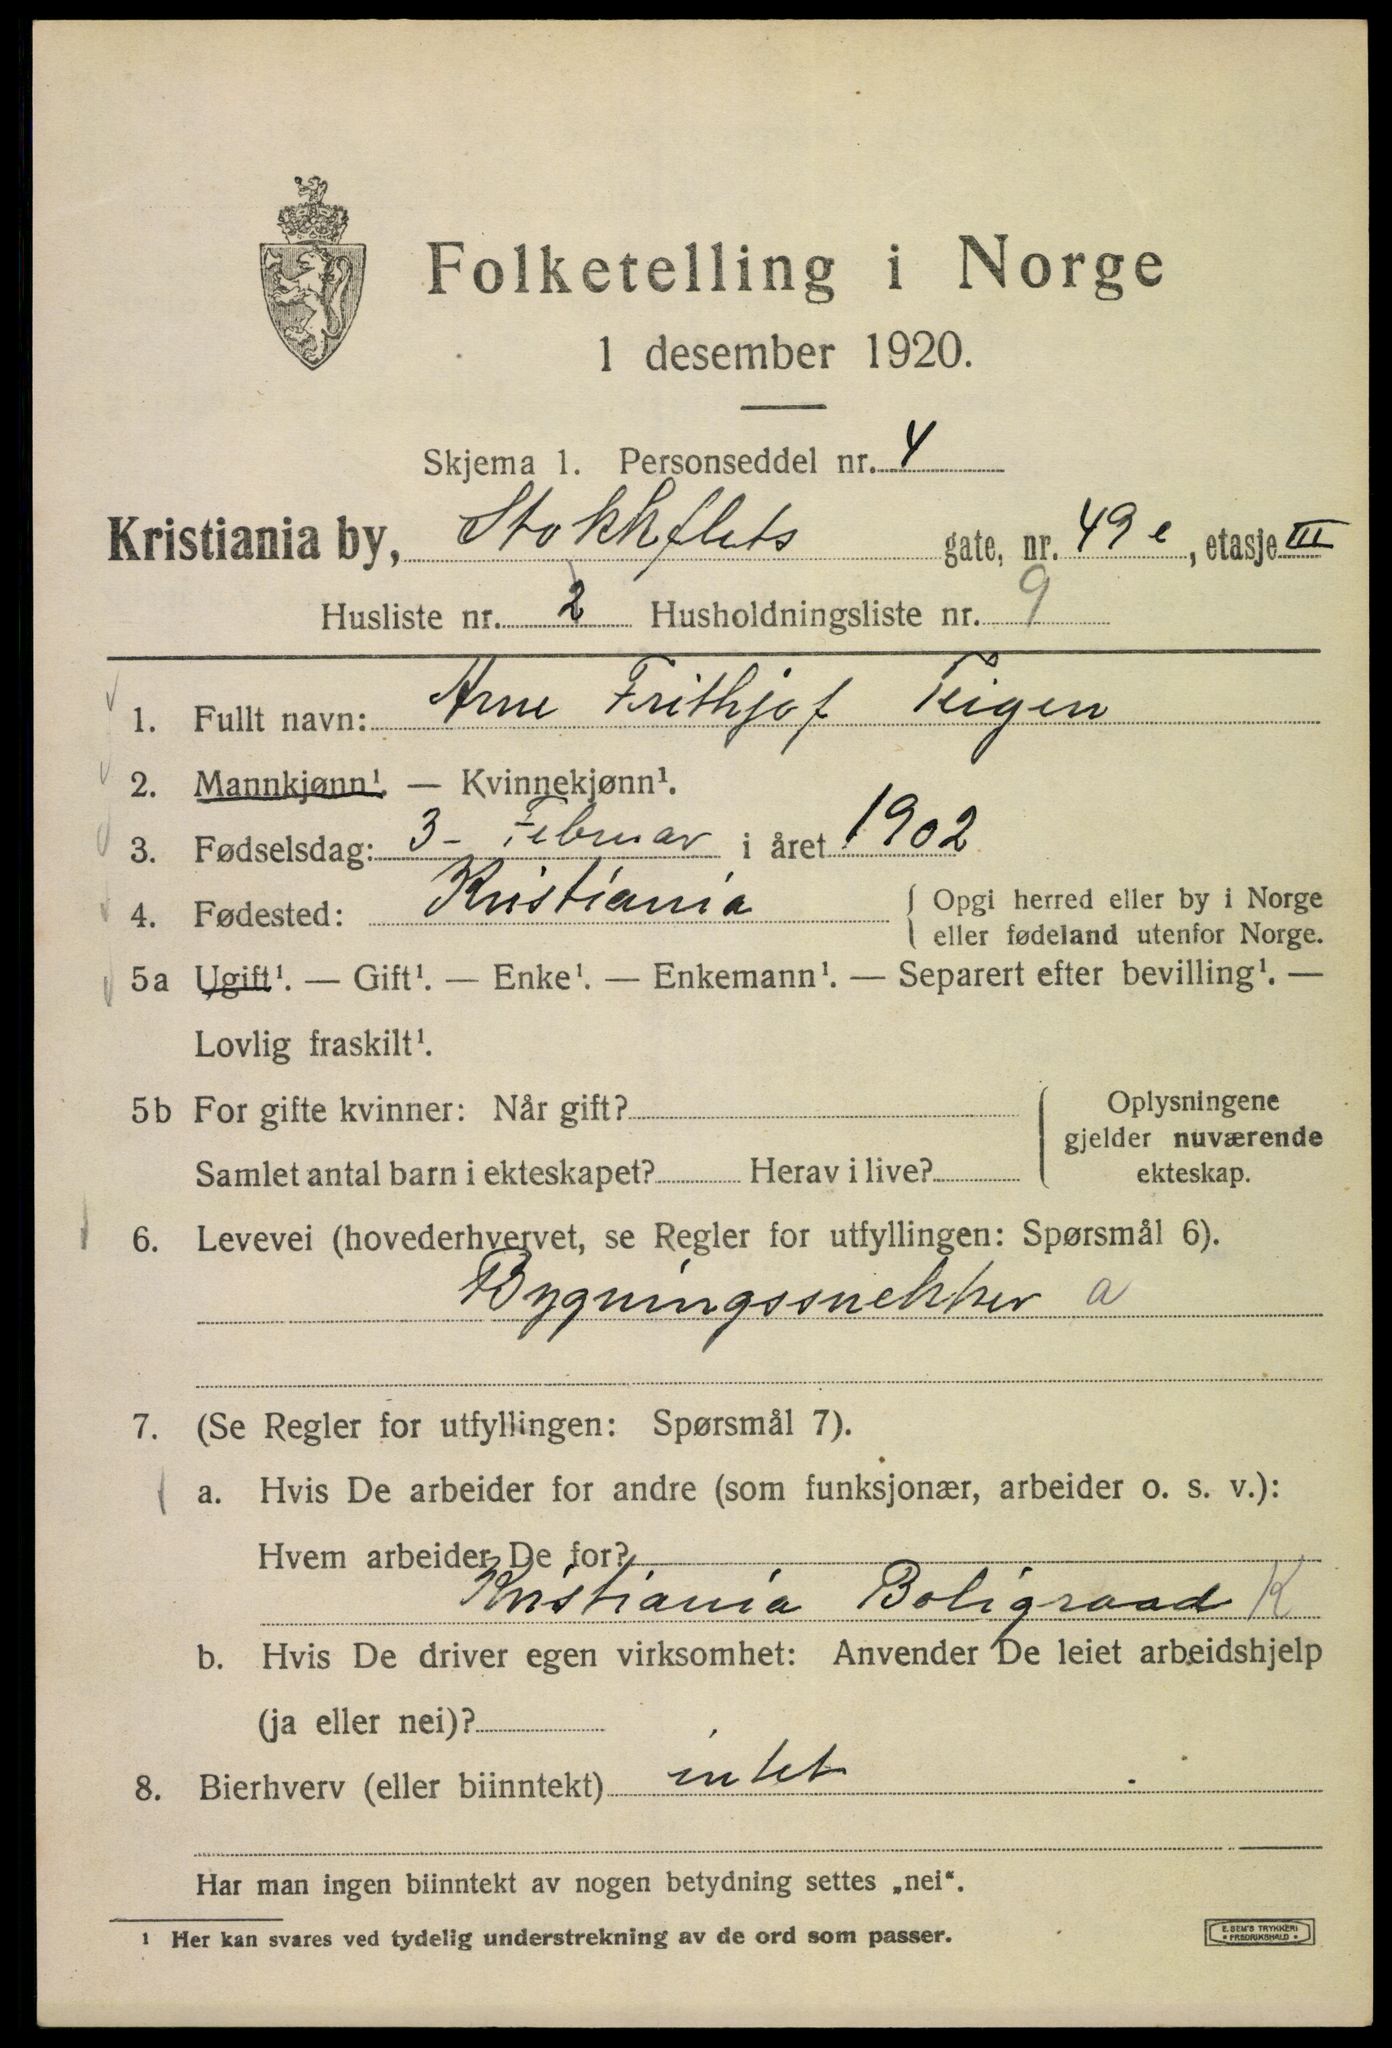 Folketelling i Norge
1 desember 1920.
Skjema 1. Personseddel nr. 4
Kristiania by, Stokkflets gate, nr. 49 e, etasje III
Husliste nr. 2 Husholdningsliste nr. 9
1. Fullt navn: Arne Frithjof Teigen
2. Mannkjønn¹. — Kvinnekjønn¹.
3. Fødselsdag: 3 - Februar i året 1902
4. Fødested: Kristiania { Opgi herred eller by i Norge
eller fødeland utenfor Norge.
5a Ugift¹. — Gift¹. — Enke¹. — Enkemann¹. — Separert efter bevilling¹. —
Lovlig fraskilt¹.
5b For gifte kvinner: Når gift?
Samlet antal barn i ekteskapet? Herav i live?
{ Oplysningene
gjelder nuværende
ekteskap.
6. Levevei (hovederhvervet, se Regler for utfyllingen: Spørsmål 6).
Bygningssnekker a
7. (Se Regler for utfyllingen: Spørsmål 7).
a. Hvis De arbeider for andre (som funksjonær, arbeider o. s. v.):
Hvem arbeider De for?
Kristiania Boligraad K
b. Hvis De driver egen virksomhet: Anvender De leiet arbeidshjelp
(ja eller nei)?
8. Bierhverv (eller biinntekt) intet
Har man ingen biinntekt av nogen betydning settes „nei“.
¹ Her kan svares ved tydelig understrekning av de ord som passer.
E. SEM'S TRYKKERI
• FREDRIKSHALD •